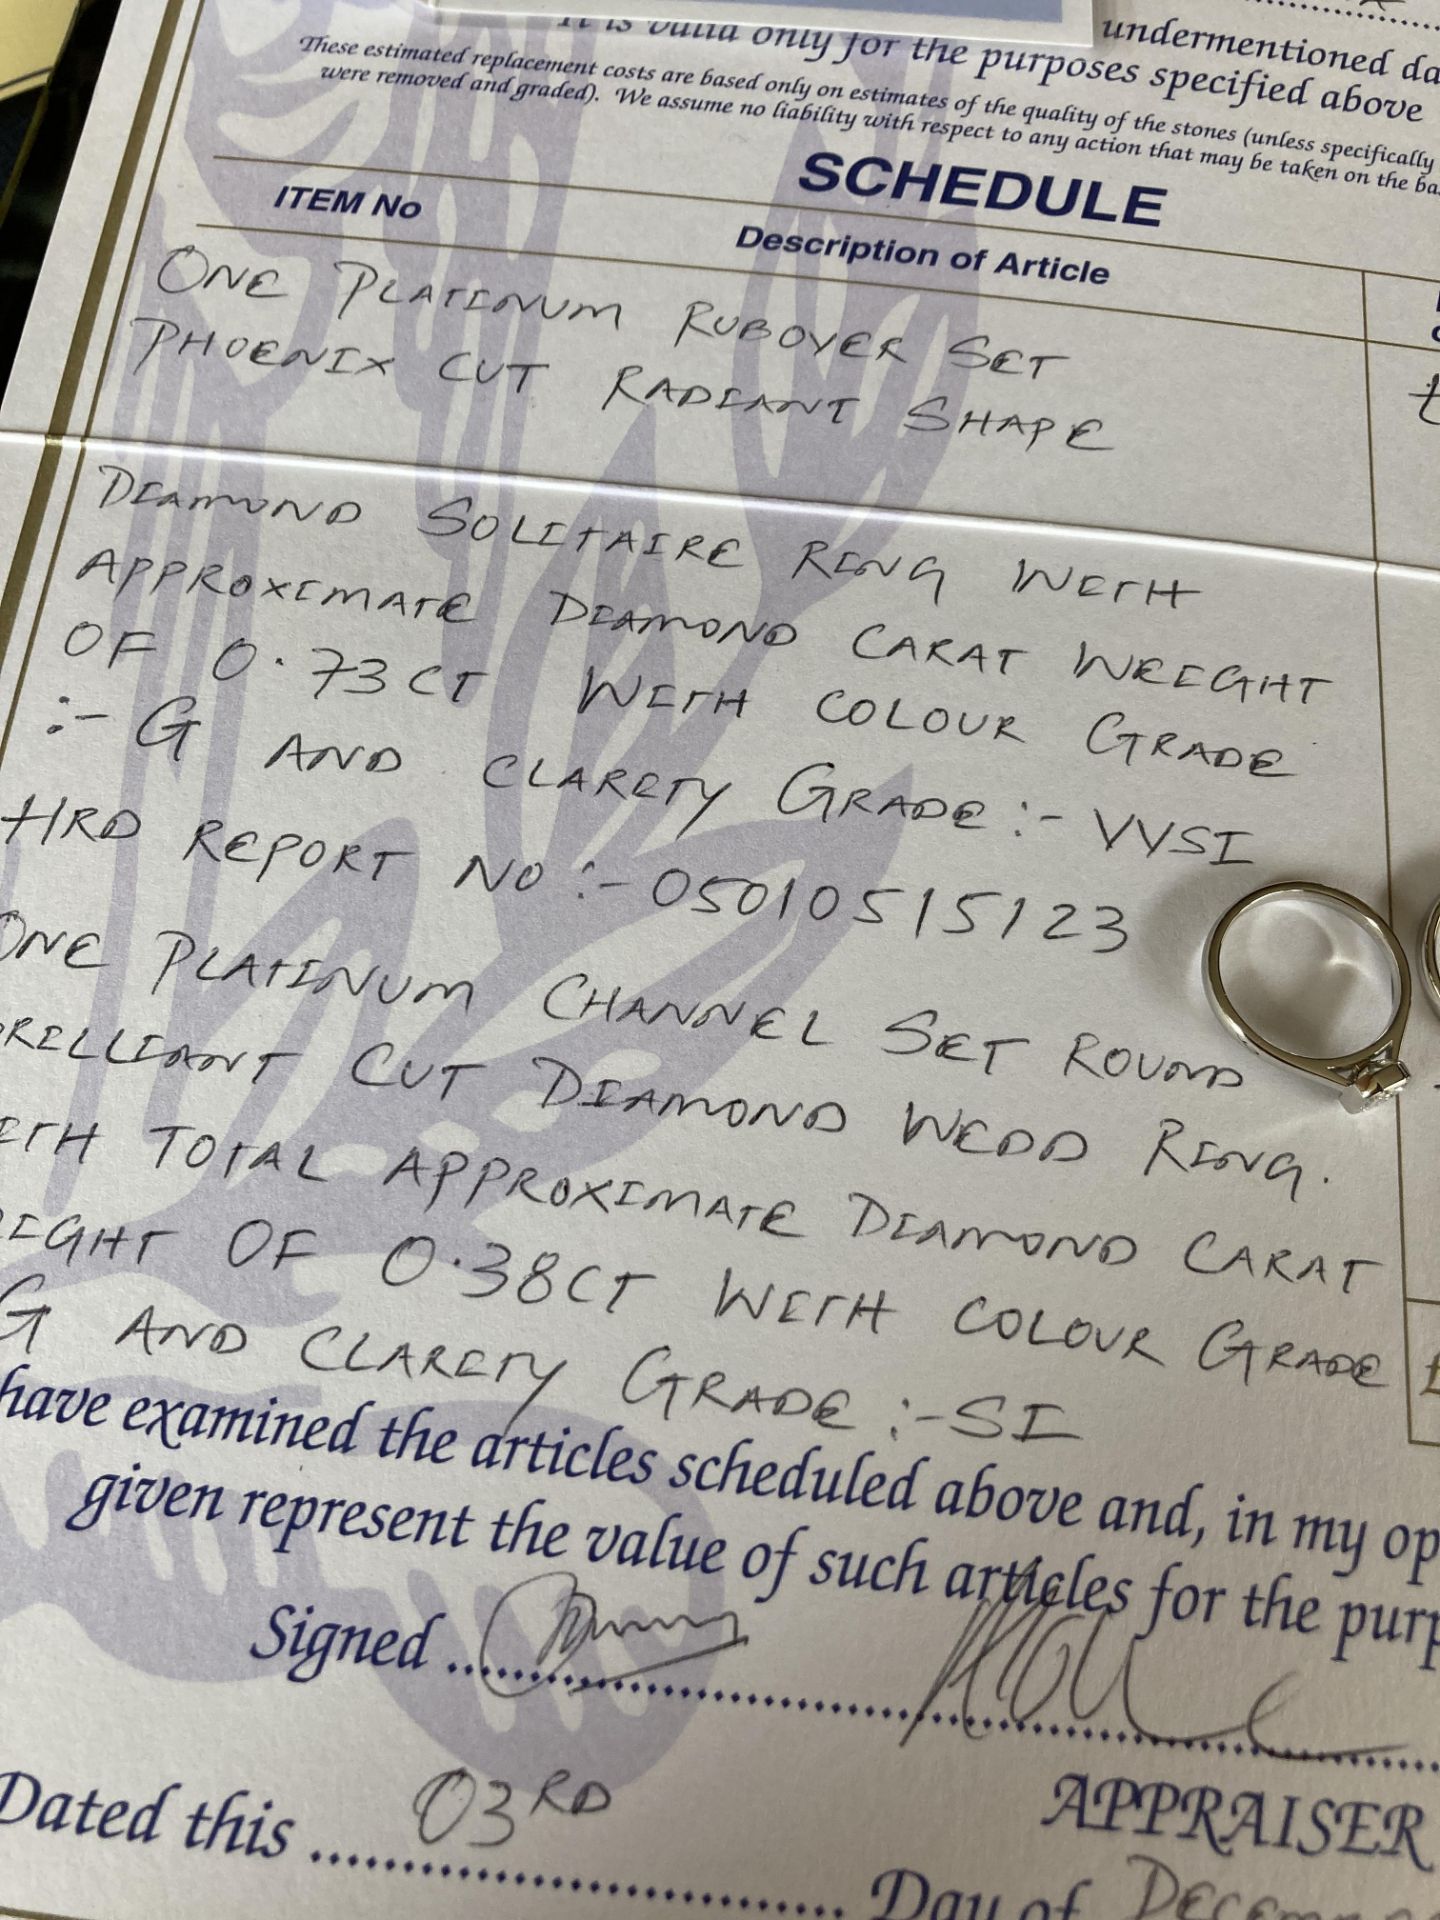 It is valid only for the purposes specified above
undermentioned da
These estimated replacement costs are based only on estimates of the quality of the stones (unless specifically
were removed and graded). We assume no liability with respect to any action that may be taken on the ba
SCHEDULE
ITEM No
Description of Article
ONE PLATINUM RUBOVER SET
PHOENIX CUT RADIANT SHAPE
DIAMOND SOLITAIRE RING WITH
APPROXIMATE DIAMOND CARAT WEIGHT
OF 0.73CT WITH COLOUR GRADE
:- G AND CLARITY GRADE :- VVSI
HRD REPORT NO :- 05010515123
ONE PLATINUM CHANNEL SET ROUND
BRILLIANT CUT DIAMOND WEDD RING.
WITH TOTAL APPROXIMATE DIAMOND CARAT
EIGHT OF 0.38CT WITH COLOUR GRADE
G AND CLARITY GRADE :- SI
have examined the articles scheduled above and, in my op
given represent the value of such articles for the purp
Signed
APPRAISER
Dated this 03RD Day of DECEM